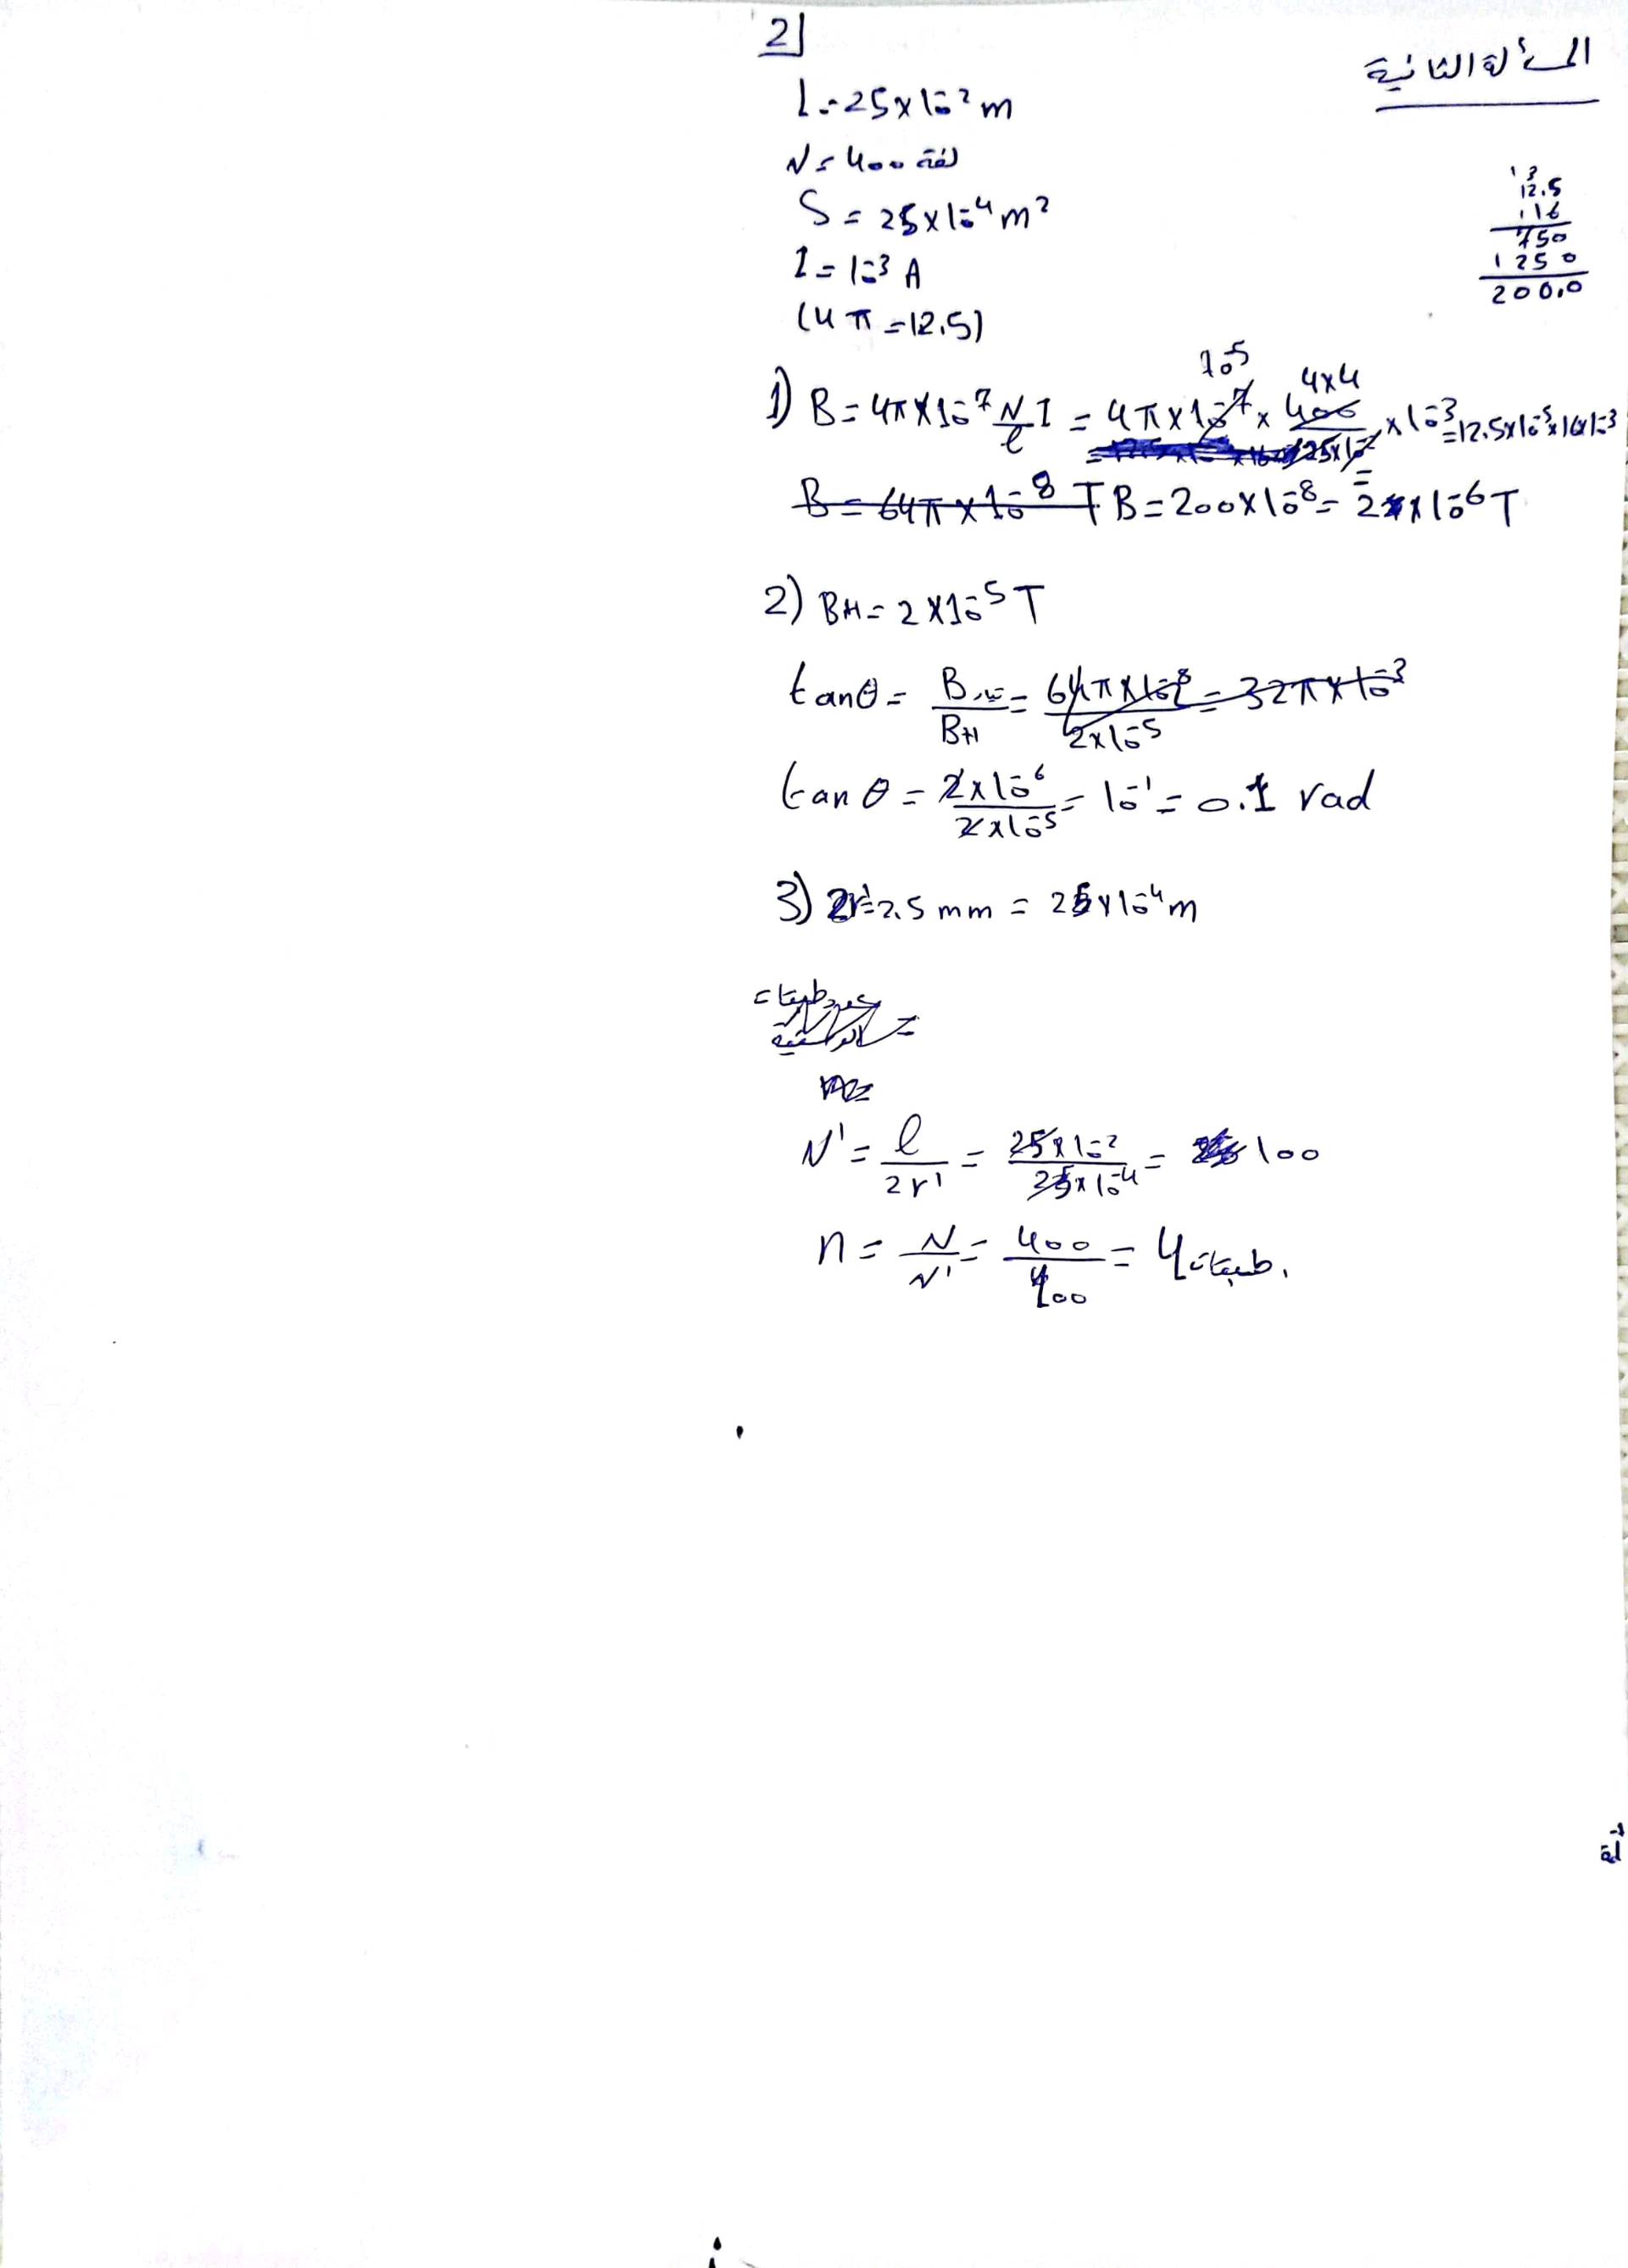 المسألة الثانية
2]
l = 25×10⁻² m
N = 400 لفة
S = 25×10⁻⁴ m²
I = 10⁻³ A
(4π = 12.5)
12.5
16
750
1250
200.0
1) B = 4π×10⁻⁷ N/l I = 4π×10⁻⁷ × 400/25×10⁻² × 10⁻³ = 12.5×10⁻⁵×16×10⁻³
10⁻⁵ 4×4
B = 64π×10⁻⁸ T B = 200×10⁻⁸ = 2×10⁻⁶ T
2) BH = 2×10⁻⁵ T
tanθ = B/BH = 64π×10⁻⁸/2×10⁻⁵ = 32π×10⁻³
tanθ = 2×10⁻⁶/2×10⁻⁵ = 10⁻¹ = 0.1 rad
3) 2r' = 2.5 mm = 25×10⁻⁴ m
N' = l/2r' = 25×10⁻²/25×10⁻⁴ = 100
n = N/N' = 400/100 = 4 طبقات.